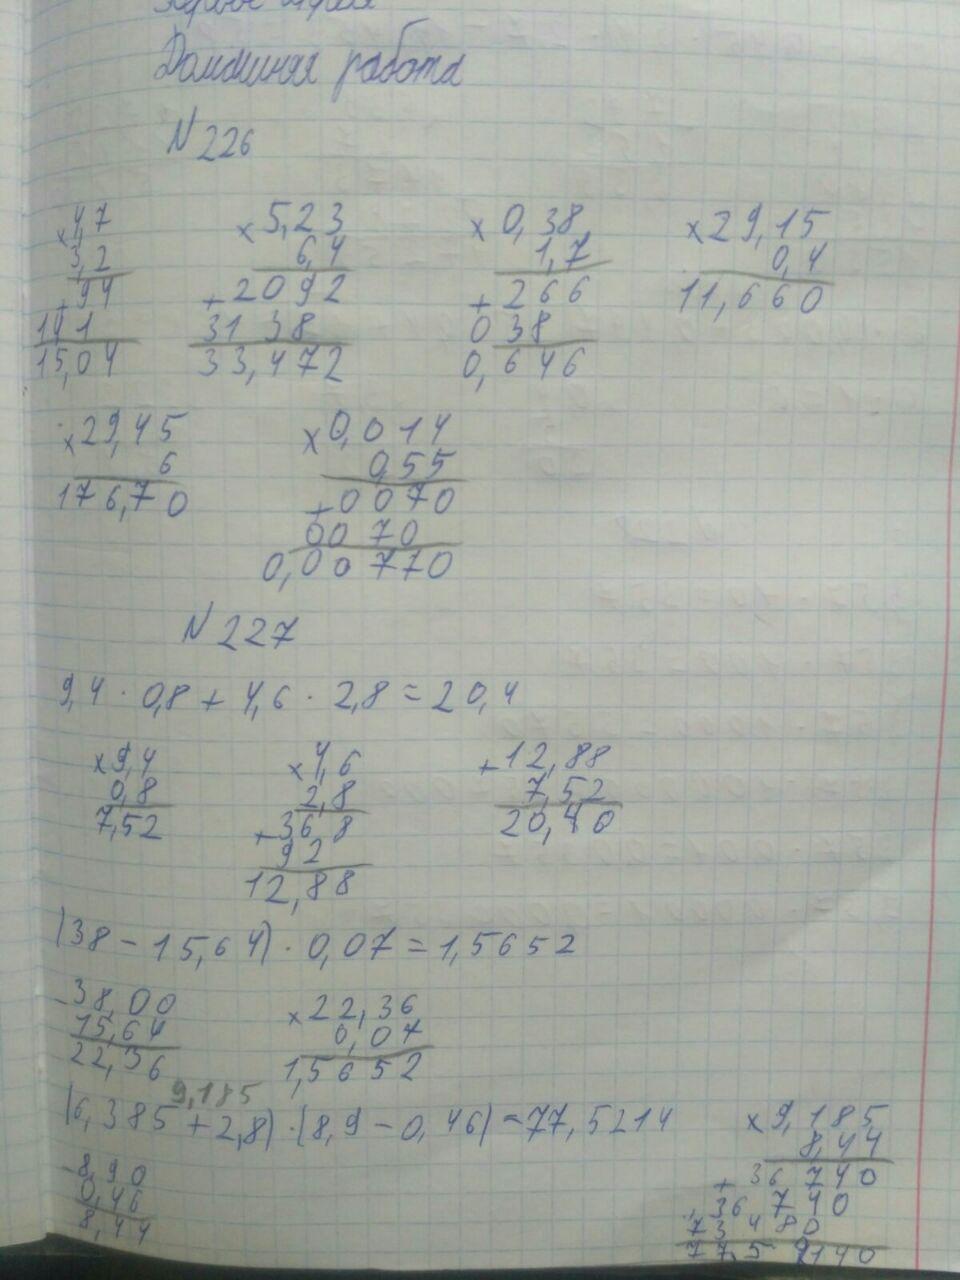 Домашняя работа
N 226
×4,7 ×5,23 ×0,38 ×29,15
3,2 6,4 1,7 0,4
+94 +2092 +266 11,660
141 3138 038
15,04 33,472 0,646
×29,45 ×0,014
6 0,55
176,70 +0070
0070
0,00770
N 227
9,4 · 0,8 + 4,6 · 2,8 = 20,4
×9,4 ×4,6 +12,88
0,8 2,8 7,52
7,52 +368 20,40
92
12,88
(38 - 15,64) · 0,07 = 1,5652
-38,00 ×22,36
15,64 0,07
22,36 1,5652
9,185
(6,385 + 2,8) · (8,9 - 0,46) = 77,5214
-8,90 ×9,185
0,46 8,44
8,44 +36740
36740
73480
77,5 140